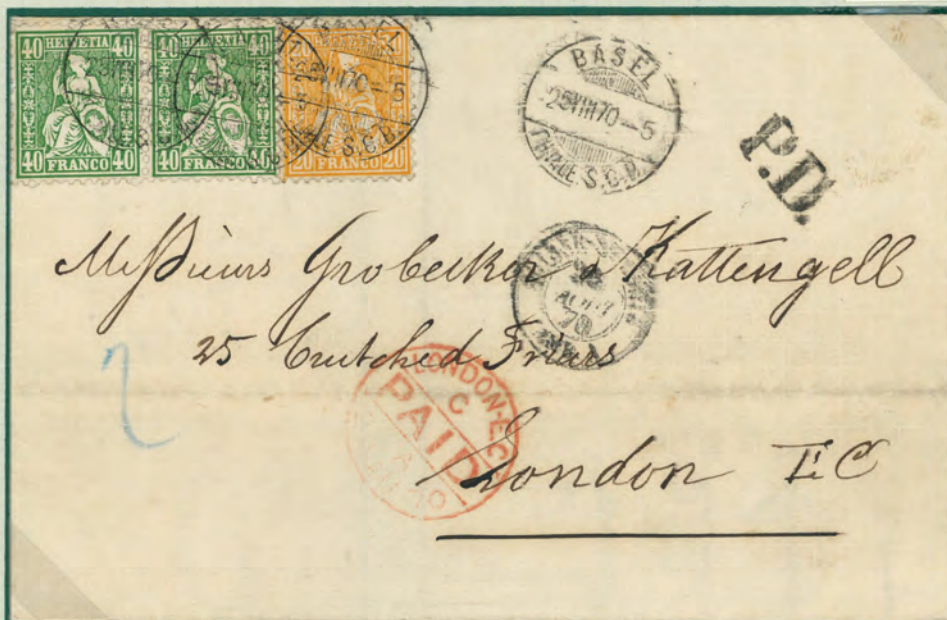 40 HELVETIA 40
40 FRANCO 40
40 HELVETIA 40
40 FRANCO
20 20
20 FRANCO 20
BASEL
25 VIII 70 – 5
S.C.B.
P.D.
Messieurs Grobecker & Kattengell
25 Crutched Friars
London EC
AOUT
70
LONDON-EC
C
PAID
70
2